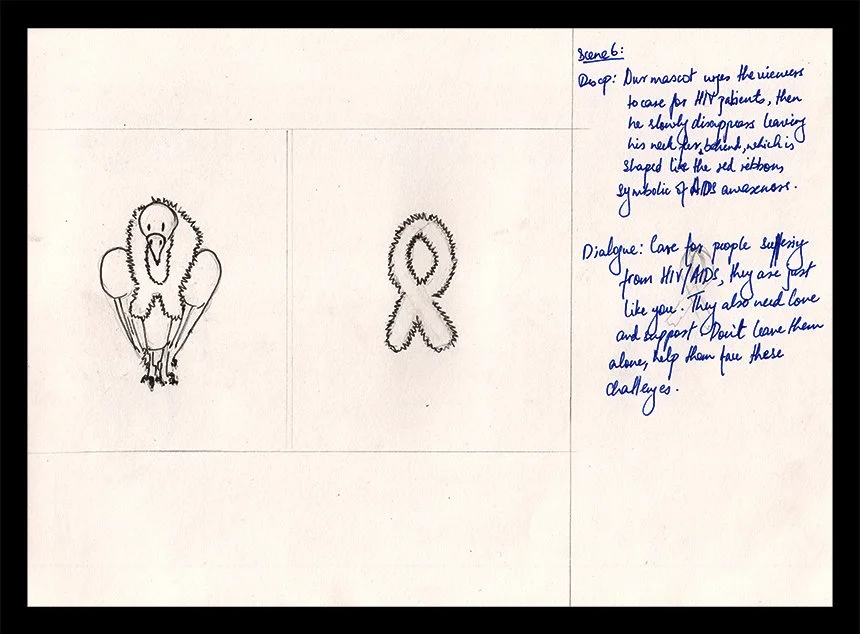 Scene 6:
Descp: Our mascot urges the viewers
to care for HIV patients, then
he slowly disappears leaving
his neck fur, behind, which is
shaped like the red ribbon,
symbolic of AIDS awareness.
Dialogue: Care for people suffering
from HIV/AIDS, they are just
like you. They also need love
and support. Don't leave them
alone, help them face these
challenges.